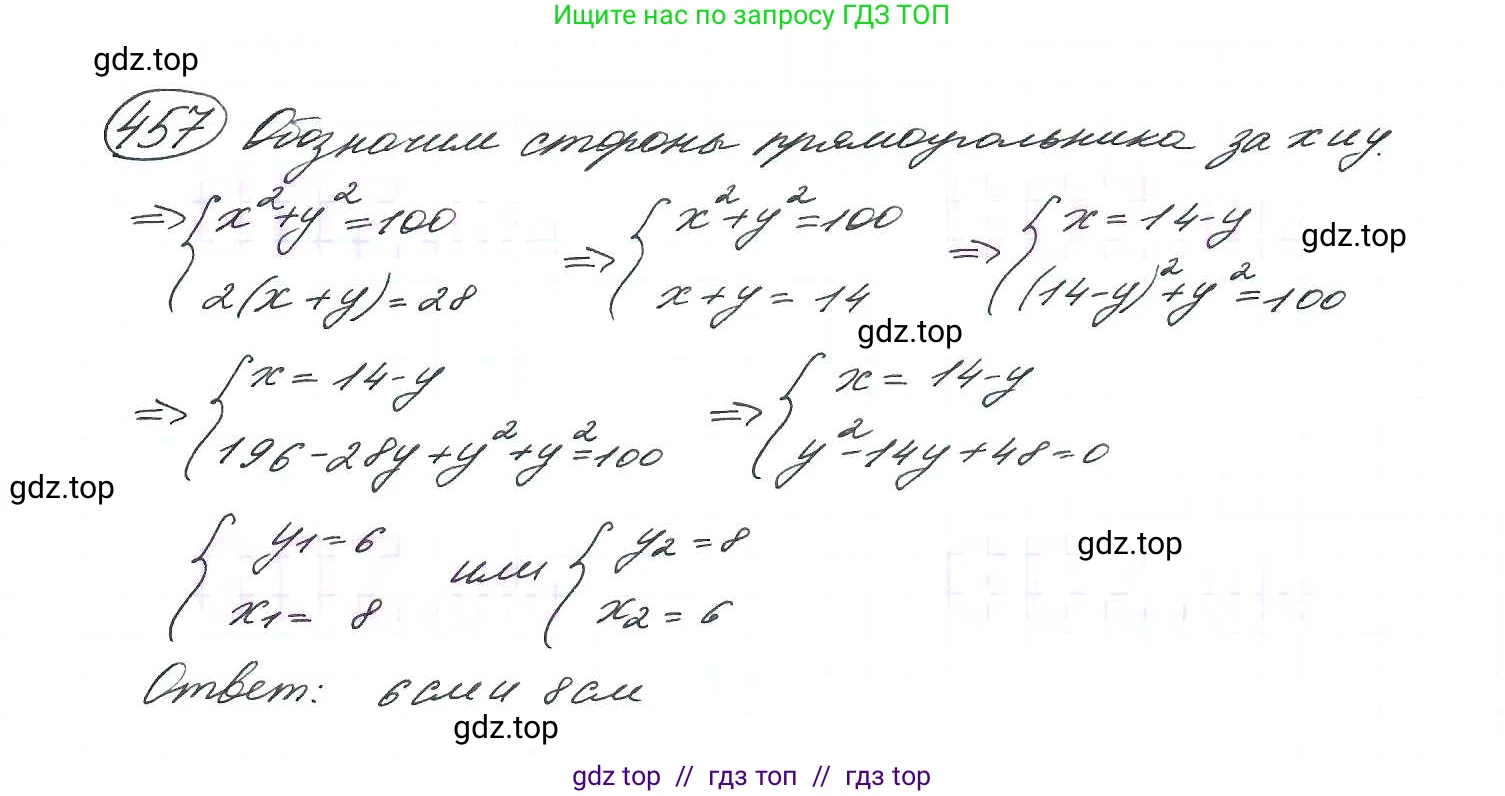 Ищите нас по запросу ГДЗ ТОП
gdz.top
457 Обозначим стороны прямоугольника за x и y.
=> { x²+y²=100 => { x²+y²=100 => { x=14-y
2(x+y)=28 x+y=14 (14-y)²+y²=100
gdz.top
gdz.top
=> { x=14-y => { x=14-y
196-28y+y²+y²=100 y²-14y+48=0
gdz.top
{ y1=6 или { y2=8
x1=8 x2=6
gdz.top
Ответ: 6 см и 8 см
gdz.top
gdz top // гдз топ // гдз top